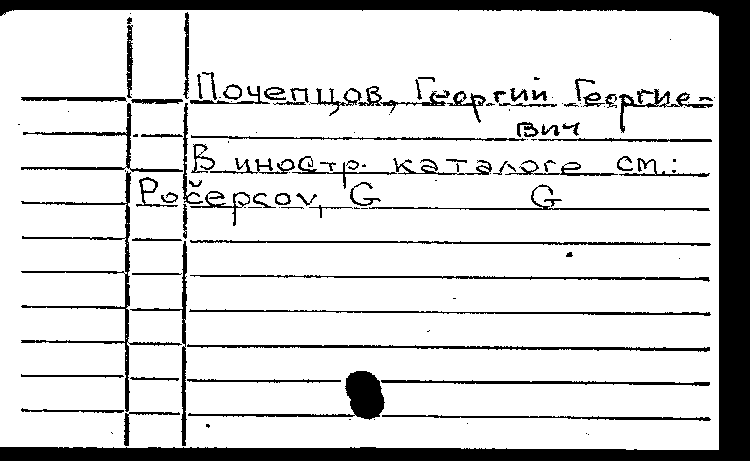 Почепцов, Георгий Георгие-
вич
В иностр. каталоге см.:
Počepcov, G G